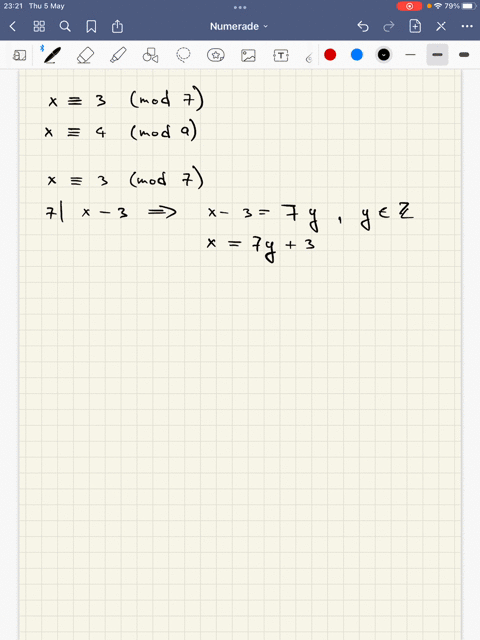 23:21 Thu 5 May
79%
Numerade
T
x ≡ 3 (mod 7)
x ≡ 4 (mod 9)
x ≡ 3 (mod 7)
7 | x - 3 ⟹ x - 3 = 7y , y ∈ ℤ
x = 7y + 3